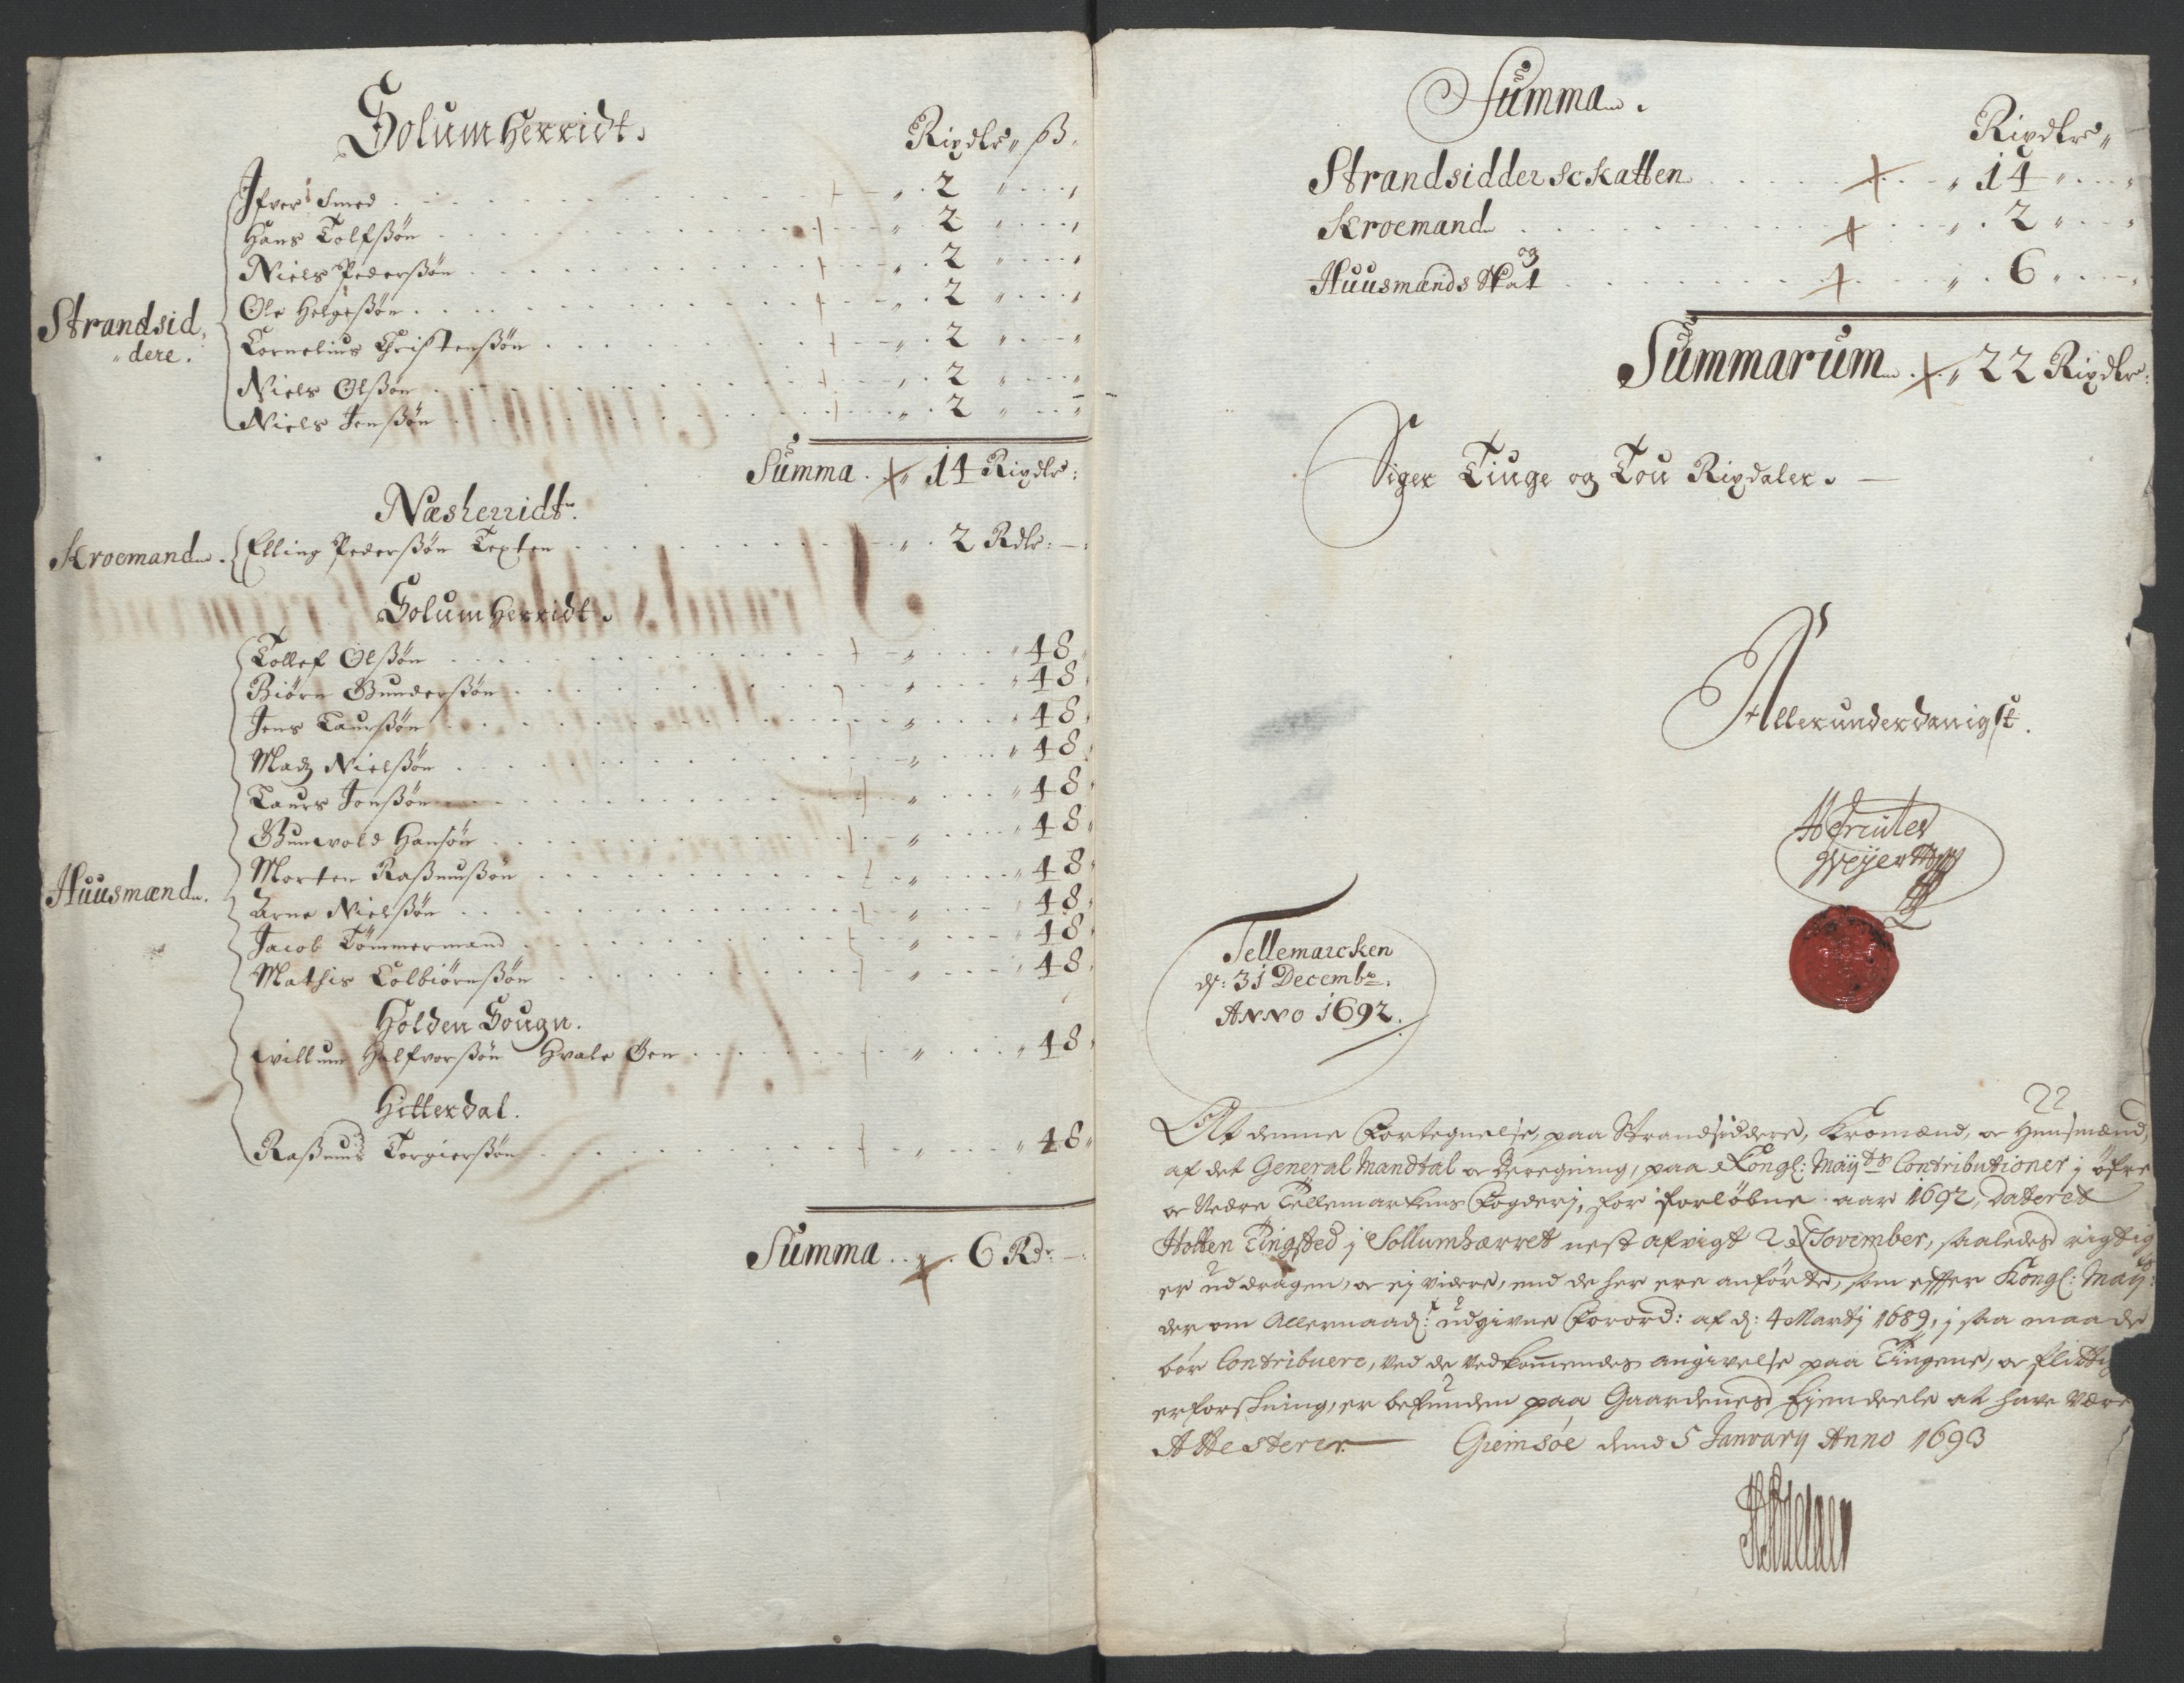 Solum Herridt.
Rixdlr " ß.
Strandsid,
"dere.
Ifver Smed . . . " . 2 "
Hans Tolfßøn . . . " . 2 "
Niels Pederßøn . . . " . 2 "
Ole Helgeßøn . . . " . 2 "
Cornelius Christenßøn . . . " . 2 "
Niels Olßøn . . . " . 2 "
Niels Jenßøn . . . " . 2 "
Summa . " 14 Rixdlr:
Næsherridt.
Kroemand . Elling Pederßøn Texten . . . " . 2 Rdlr:
Solum Herridt.
Huusmænd.
Tollef Olßøn . . . " 48
Biørn Gunderßøn . . . " 48
Jens Laurßøn . . . " 48
Madz Nielßøn . . . " 48
Laurs Jonßøn . . . " 48
Gunvold Hansøn . . . " 48
Morten Raßmußøn . . . " 48
Arne Nielßøn . . . " 48
Jacob Tømmermand . . . " 48
Mathis Tolbiørnßøn . . . " 48
Holden Sougn.
Willum Halfvorßøn Hvale Øen . . . " 48
Hitterdal.
Raßmus Torgierßøn . . . " 48
Summa . . . 6 Rdr:
Summa.
Rixdlr "
Strandsidder schatten . . . " 14 "
Kroemand . . . " . 2 "
og
Huusmænds Skat . . . " . 6 "
Summarum . " 22 Rixdlr:
Siger Tiuge og Tou Rixdaler.
Allerunderdanigst.
Tellemarcken
dj: 31 Decembr.
Anno 1692.
22
At denne Fortegnelse, paa Strandsiddere, Kromænd, oc Huusmænd,
af det General Mandtal oc Beregning, paa Kongl: Maÿtz Contributioner j øfre
oc Nedre Tellemarkens Fogderj, for forløbne aar 1692, Dateret
Holten Tingsted j Sollumhærret nest afvigt 2 November, saaledes rigtig
er uddragen, oc ej videre, end de her ere anførte, som efter Kongl: Maÿtz
der om Allernaad: udgivne Forord: af dj: 4 Martj 1689, j saa maade
bør Contribuere, ved de vedkommendes angivelse paa Tingene, oc flittig
erforskning, er befunden paa Gaardenes Ejendeele at have være
Attesterer Giemsøe dend 5 Januarij Anno 1693